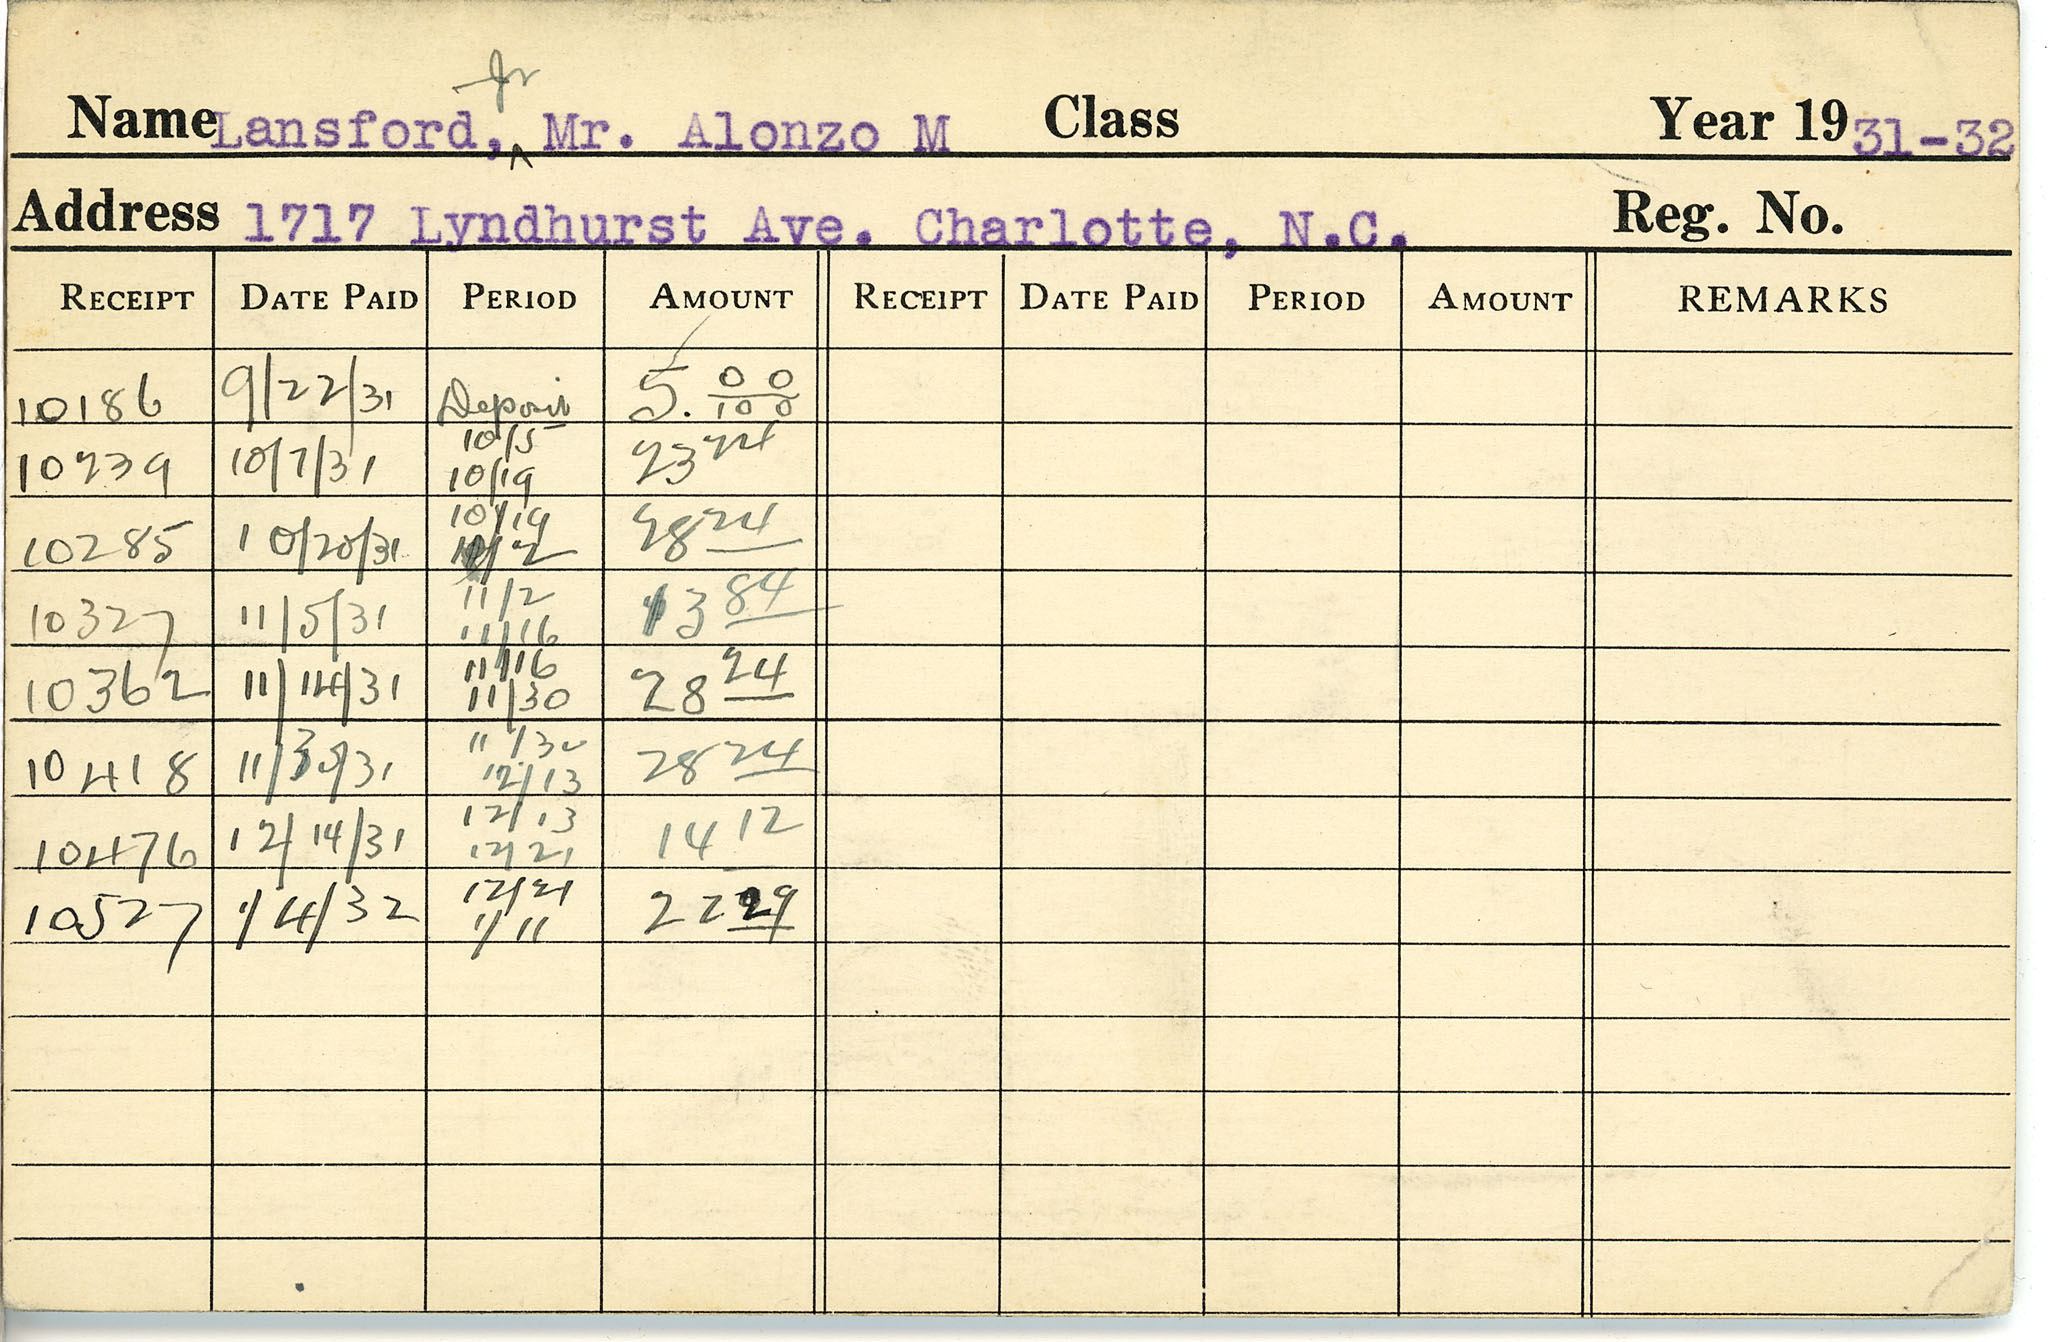 Jr
Name Lansford, Mr. Alonzo M Class Year 19 31-32
Address 1717 Lyndhurst Ave. Charlotte, N.C. Reg. No.
RECEIPT DATE PAID PERIOD AMOUNT RECEIPT DATE PAID PERIOD AMOUNT REMARKS
10186 9/22/31 Deposit 5. 00/100
10239 10/7/31 10/5 10/19 23 24
10285 10/20/31 10/19 11/2 28 24
10327 11/5/31 11/2 11/16 13 84
10362 11/14/31 11/16 11/30 28 24
10418 11/30/31 11/30 12/13 28 24
10476 12/14/31 12/13 12/21 14 12
10527 1/4/32 12/21 1/11 22 29